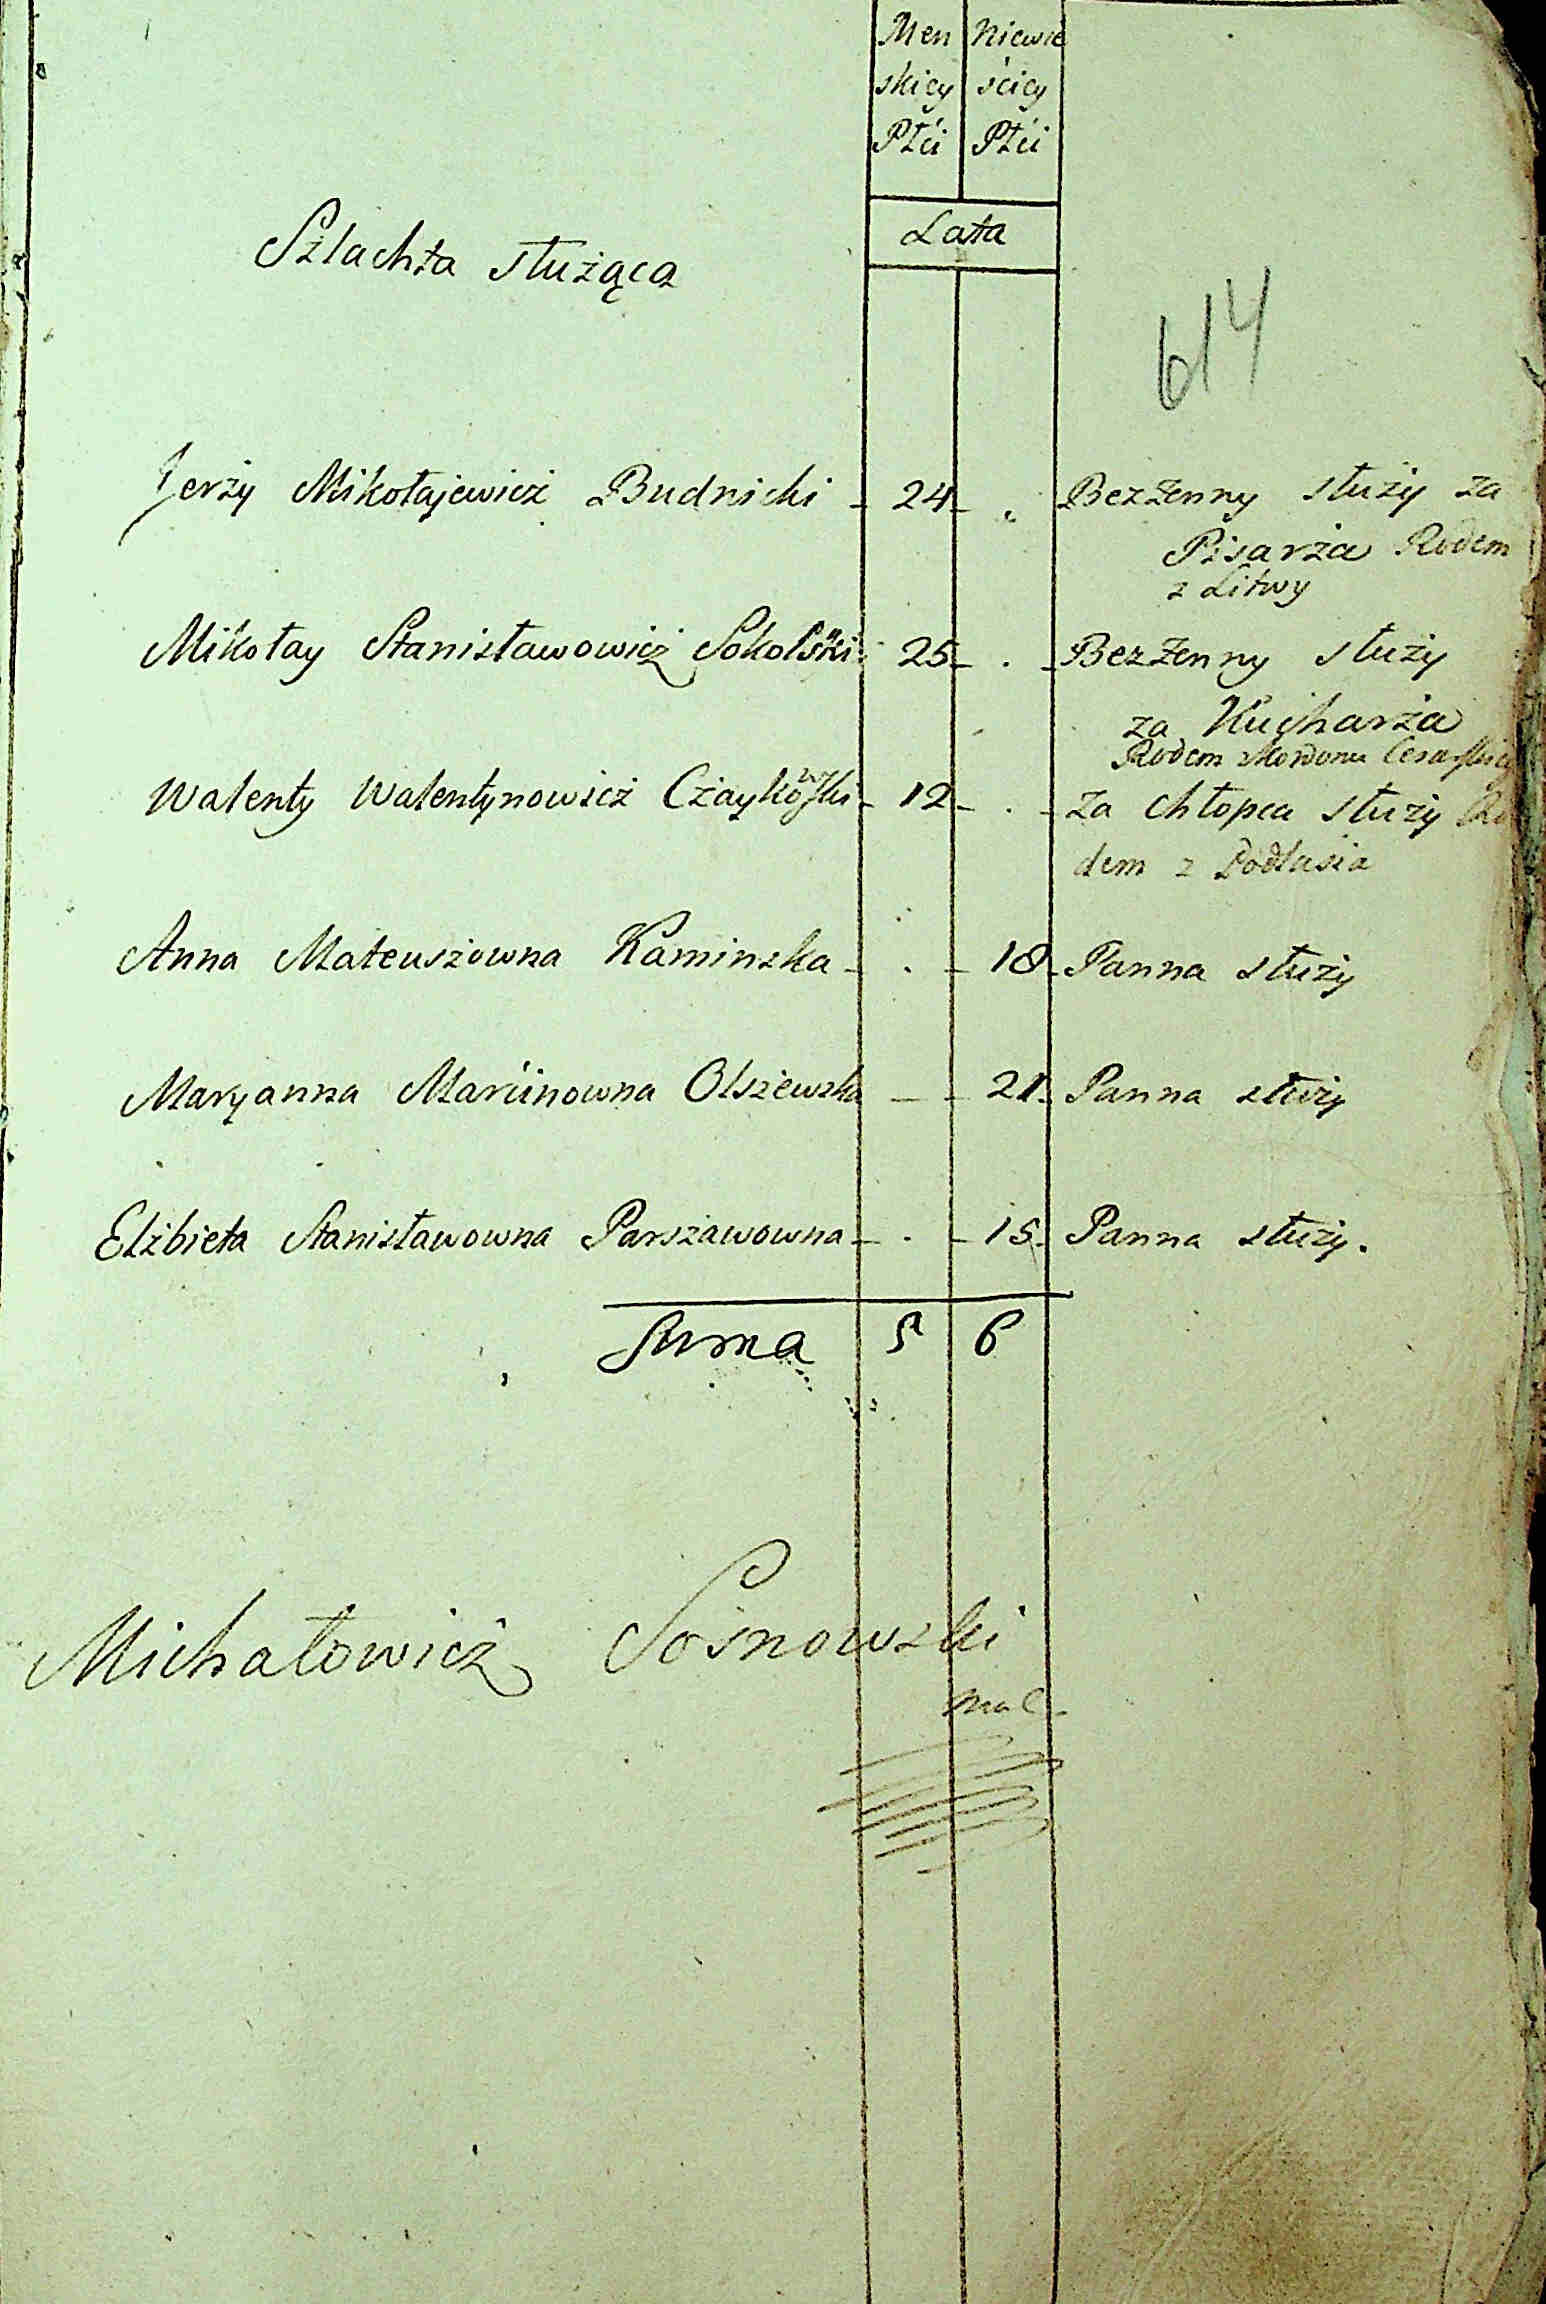 Men Niewie
skiey ściey
Płći Płći
Lata
Szlachta służąca
614
Jerży Mikołajewicż Budnicki 24 Bezżenny służy za
Pisarża Rodem
z Litwy
Mikołay Stanisławowicż Sokolski 25 Bezżenny służy
za Kucharża
Rodem
Walenty Walentynowicż Cżaykowski 12 za chłopca służy Ro
dem z Podlasia
Anna Mateuszowna Kaminska 18 Panna służy
Maryanna Marcinowna Olszewska 21 Panna służy
Elżbieta Stanisławowna Parszawowna 15 Panna służy.
Suma 5 6
Michałowicż Sosnowski